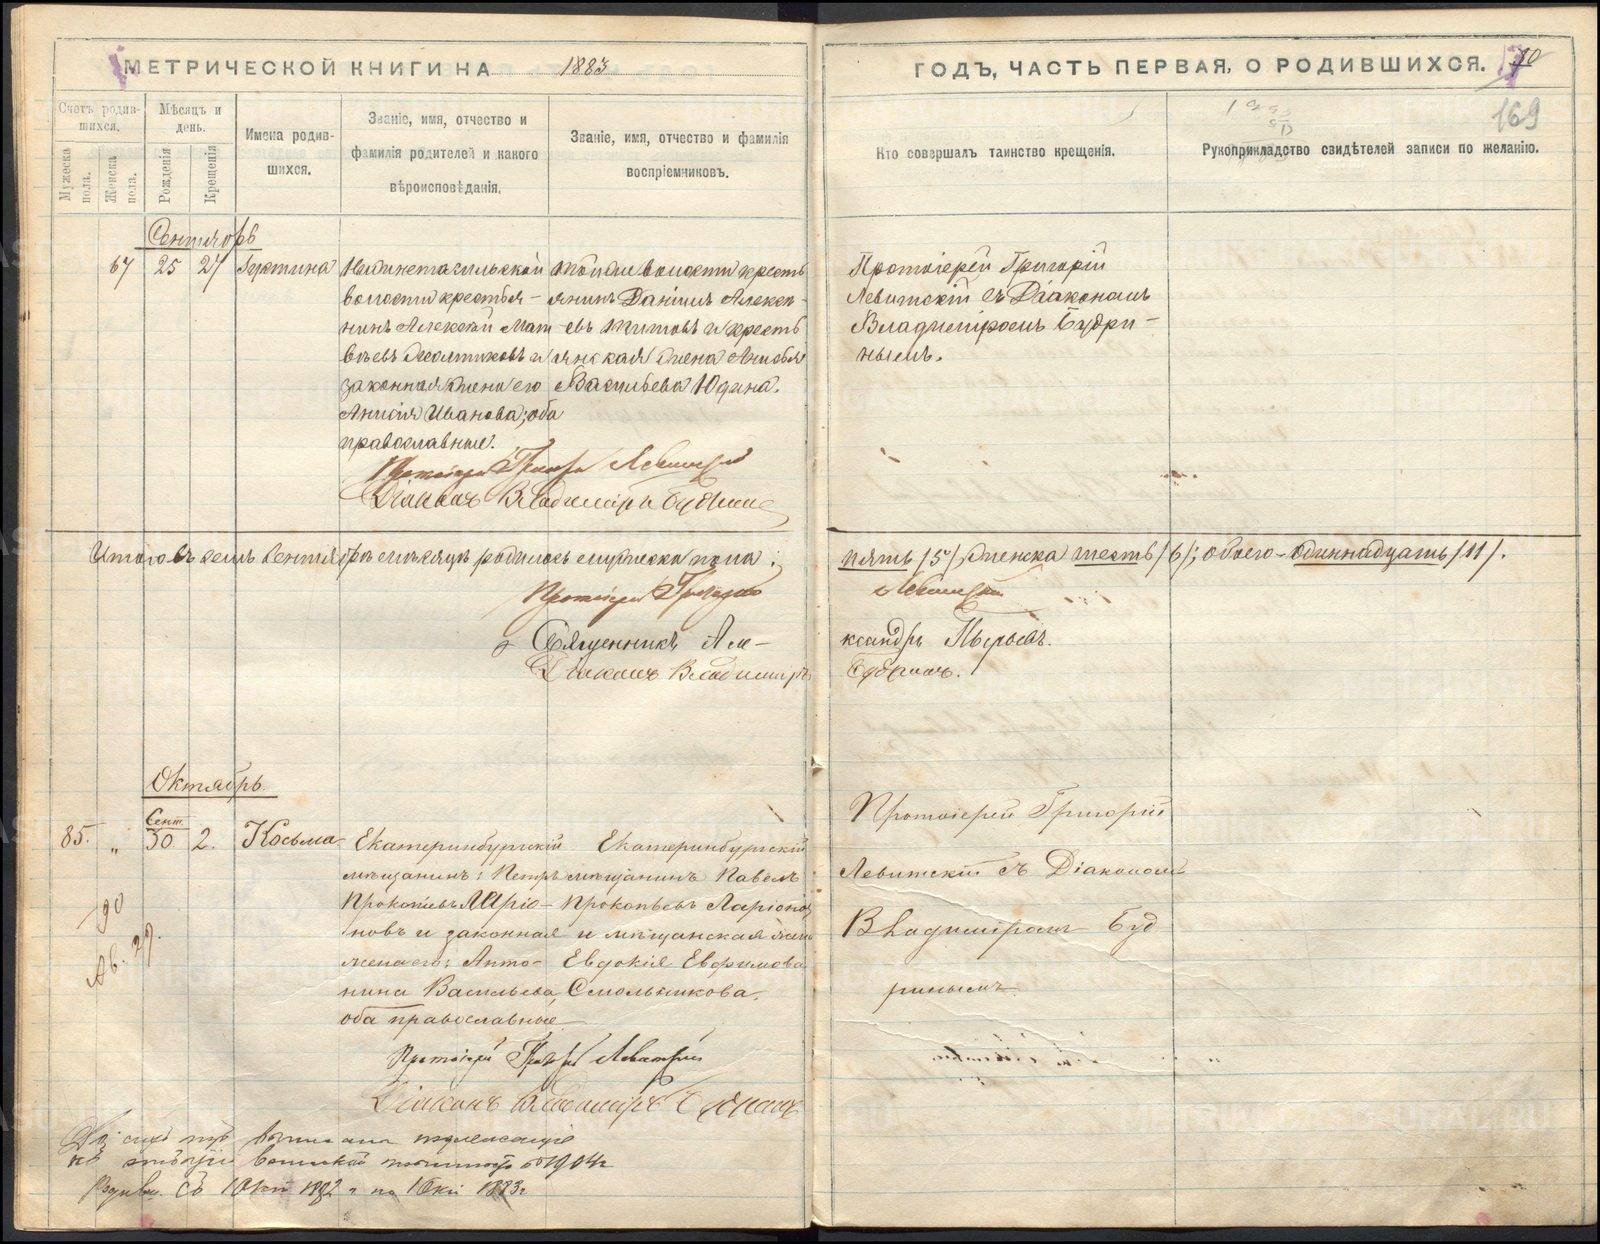 МЕТРИЧЕСКОЙ КНИГИ НА 1883
ГОДЪ, ЧАСТЬ ПЕРВАЯ, О РОДИВШИХСЯ.
169
Счетъ родив-
шихся.
Мужеска
пола.
Женска
пола.
Мѣсяцъ и
день.
Рожденія
Крещенія
Имена родив-
шихся.
Званіе, имя, отчество и
фамилія родителей и какого
вѣроисповѣданія.
Званіе, имя, отчество и фамилія
воспріемниковъ.
Кто совершалъ таинство крещенія.
Рукоприкладство свидѣтелей записи по желанію.
Сентябрь
67 25 27 Іустина
Нижнетагильской
волости крестья-
нинъ Алексѣй Мат
вѣевъ и
законная жена его
Анисія Иванова; оба
православные.
той же волости кресть
янинъ Даніилъ Алексѣ-
евъ Титовъ и кресть
янская жена
Васильева Юдина.
Протоіерей Григорій
Левитскій съ Діакономъ
Владиміромъ Будри-
нымъ.
Протоіерей Григорій Левитскій
Діаконъ Владиміръ Будринъ
Итого въ семъ Сентябрѣ мѣсяцѣ родилось мужеска пола:
пять /5/, женска шесть /6/; обоего - одиннадцать /11/.
Протоіерей Григорій
Левитскій
Священникъ Але-
ксандръ
Діаконъ Владиміръ
Будринъ.
Октябрь
85. „ Сент. 30 2. Косьма
Екатеринбургскій
мѣщанинъ: Петръ
Прокопьевъ Ларіо-
новъ и законная
жена его: Анто-
нина Васильева,
оба православные
Екатеринбургскій
мѣщанинъ Павелъ
Прокопьевъ Ларіоно
и мѣщанская
Евдокія Евфимова
Смольникова.
Протоіерей Григорій
Левитскій съ Діакономъ
Владиміромъ Буд
ринымъ
90
Протоіерей Григорій Левитскій
Діаконъ Владиміръ Будринъ
1904 г
съ 1 Окт 1882 г по 1 Окт 1883 г